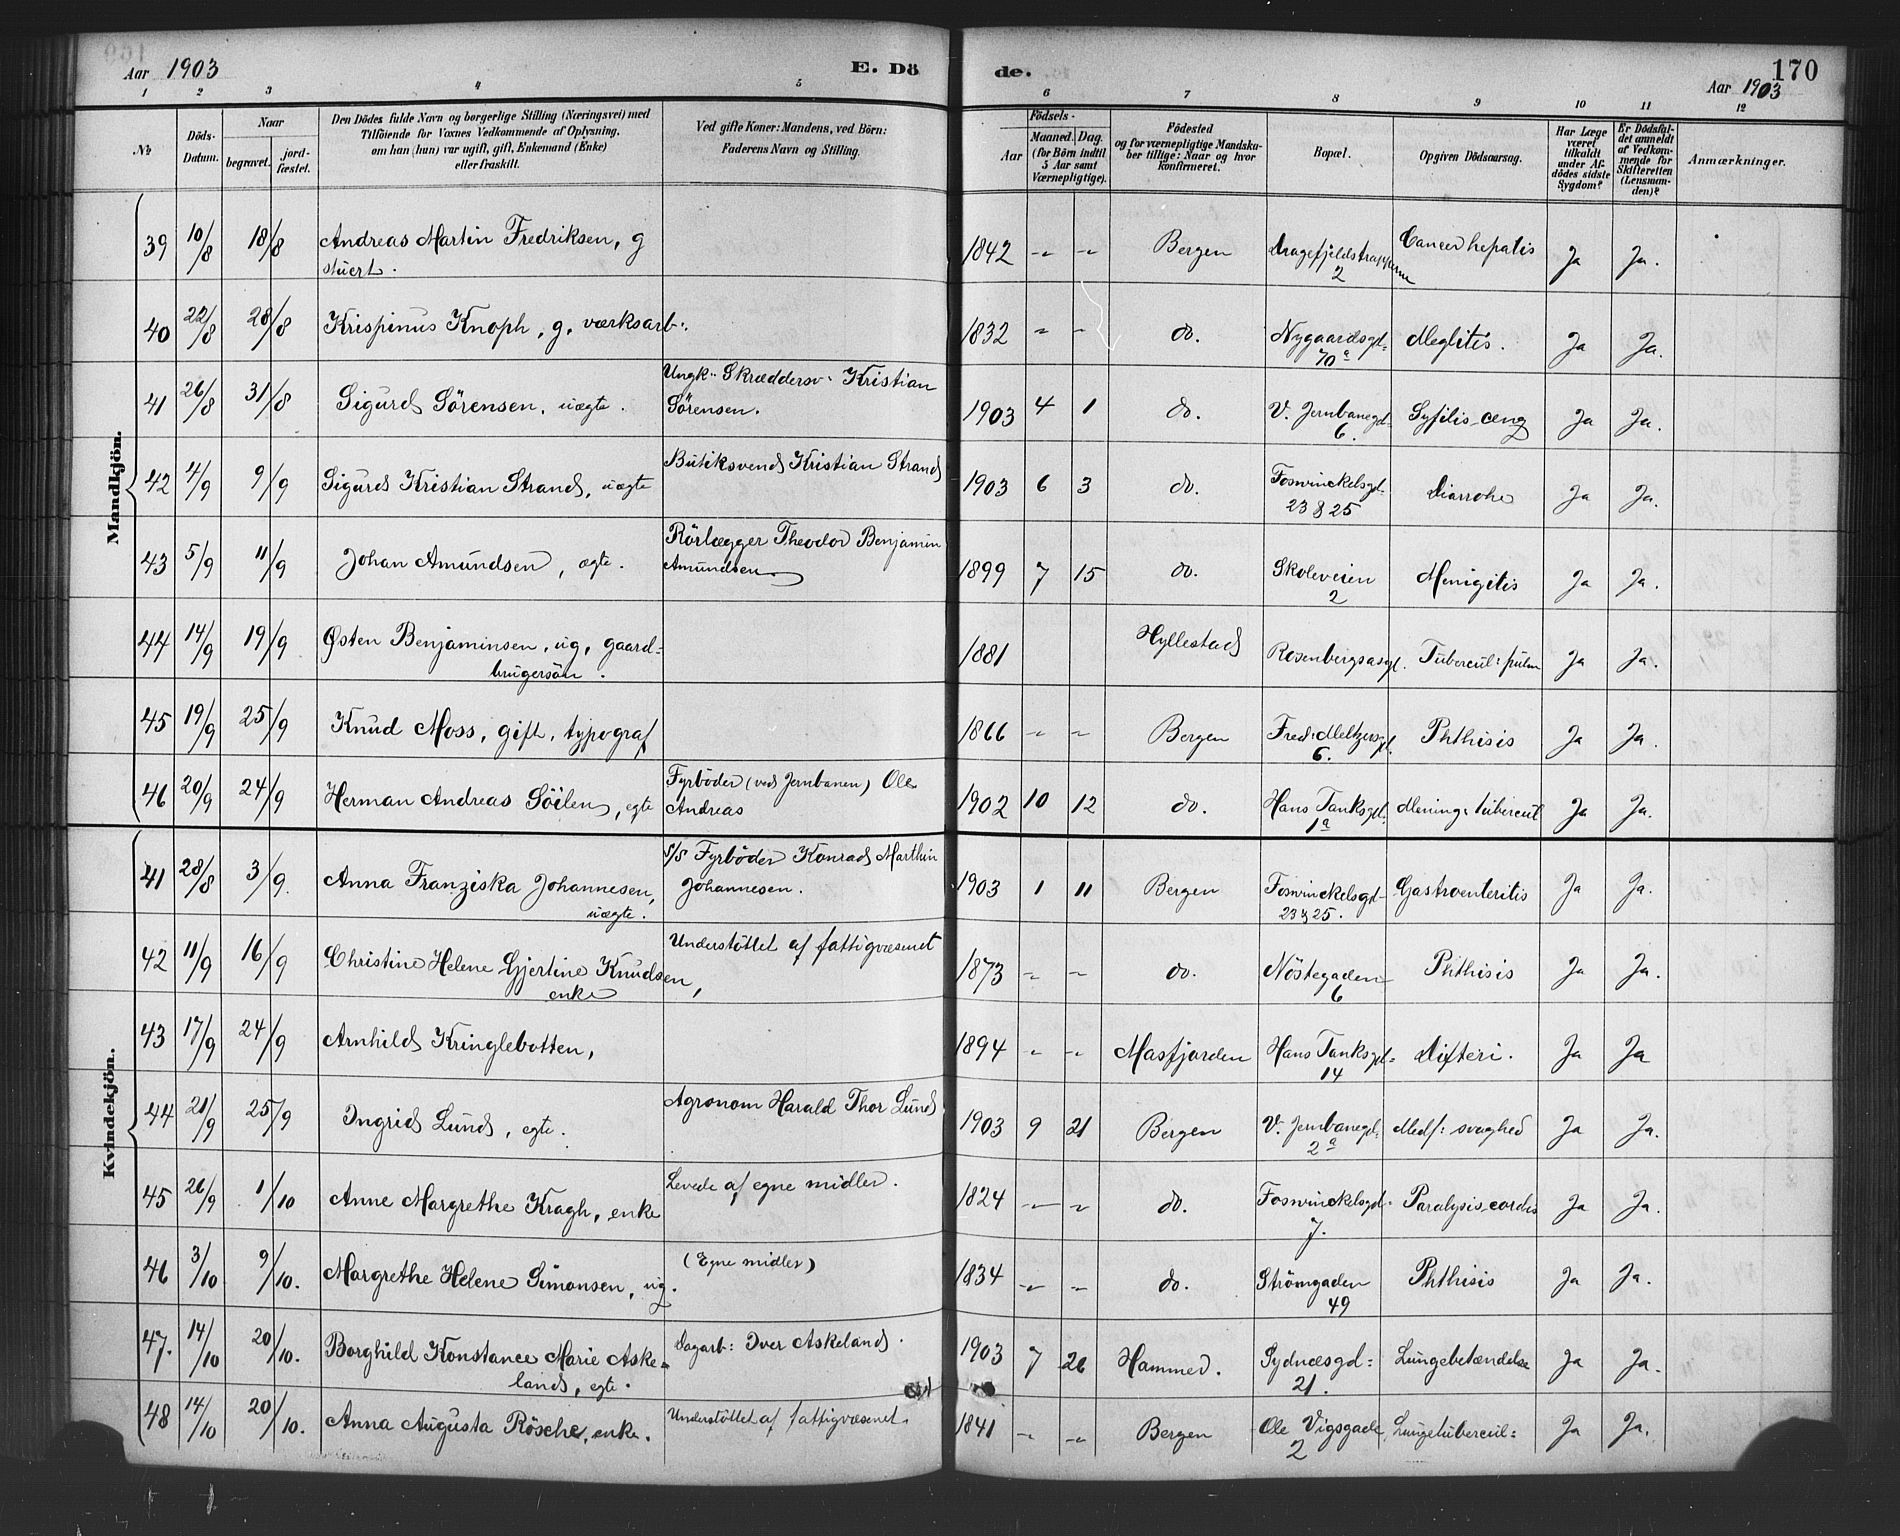 Aar 1903
E. Dö
de.
170
Aar 1903
1 2 3 4 5 6 7 8 9 10 11 12
№
Döds-Datum.
Naar
begravet.
jord-fæstet.
Den Dödes fulde Navn og borgerlige Stilling (Næringsvei) med
Tilföiende for Voxnes Vedkommende af Oplysning,
om han (hun) var ugift, gift, Enkemand (Enke)
eller fraskilt.
Ved gifte Koner: Mandens, ved Börn:
Faderens Navn og Stilling.
Födsels-
Aar
Maaned. Dag.
(for Börn indtil
5 Aar samt
Værnepligtige).
Födested
og for værnepligtige Mandska-
ber tillige: Naar og hvor
konfirmeret.
Bopæl.
Opgiven Dödsaarsag.
Har Læge
været
tilkaldt
under Af-
dödes sidste
Sygdom?
Er Dödsfal-
det anmeldt
af Vedkom-
mende for
Skifteretten
(Lensman-
den)?
Anmærkninger.
Mandkjön.
39 10/8 18/8 Andreas Martin Fredriksen, g 1842 -"- -"- Bergen Dragefjeldstrapperne Cancer hepatis Ja Ja.
stuert. 2
40 22/8 28/8 Krispinus Knoph, g, værksarb: 1832 " " do. Nygaardsgd= Meglitis. Ja Ja.
70a
41 26/8 31/8 Sigurd Sörensen, uægte. Ungk: Skræddersv: Kristian 1903 4 1 do. V. Jernbanegd= Syfilis cong Ja Ja.
Sörensen. 6.
42 4/9 9/9 Sigurd Kristian Strand, uægte Butiksvend Kristian Strand 1903 6 3 do. Foswinckelsgd. Diarrohe Ja Ja.
23 & 25
43 5/9 11/9 Johan Amundsen, ægte. Rörlægger Theodor Benjamin 1899 7 15 do. Skoleveien Menigitis Ja Ja.
Amundsen 2
44 14/9 19/9 Østen Benjaminsen, ug, gaard= 1881 Hyllestad Rosenbergsgd. Tubercul: pulm Ja Ja.
brugersön.
45 19/9 25/9 Knud Moss, gift, typograf 1866 " " Bergen Fred: Meltzersgd. Phthisis Ja Ja.
6.
46 20/9 24/9 Herman Andreas Söilen, egte Fyrböder (ved Jernbanen) Ole 1902 10 12 do. Hans Tanksgd. Mening: tubercul Ja Ja.
Andreas 1a
Kvindekjön.
41 28/8 3/9. Anna Franziska Johannesen, S/S Fyrböder Konrad Marthin 1903 1 11 Bergen Foswinckelsgd- Gastroenteritis Ja Ja.
uægte. Johannesen. 23 & 25.
42 11/9 16/9 Christine Helene Gjertine Knudsen, Understöttet af fattigvæsenet 1873 " " do. Nöstegaden Phthisis Ja Ja.
enke 6
43 17/9 24/9 Arnhild Kringlebotten, 1894 " " Masfjorden Hans Tanksgd= Difteri. Ja Ja
14
44 21/9 25/9 Ingrid Lund, egte. Agronom Harald Thor Lund 1903 9 21 Bergen V. Jernbanegd: Medf: svaghed Ja Ja.
2a
45 26/9 1/10 Anne Margrethe Kragh, enke Levede af egne midler. 1824 " " do. Foswinckelsgd: Paralysis cordis Ja Ja.
7.
46 3/10 9/10. Margrethe Helene Simonsen, ug. (Egne midler) 1834 " " do. Strömgaden Phthisis Ja Ja.
49
47. 14/10 20/10. Borghild Konstance Marie Aske= Dagarb: Iver Askeland. 1903 7 26 Hammer. Sydnæsgd= Lungebetændelse Ja Ja.
land, egte. 21.
48 14/10 20/10. Anna Augusta Rösche, enke. Understöttet af fattigvæsenet. 1841 " " Bergen Ole Vigsgade Lungetubercul= Ja Ja.
2